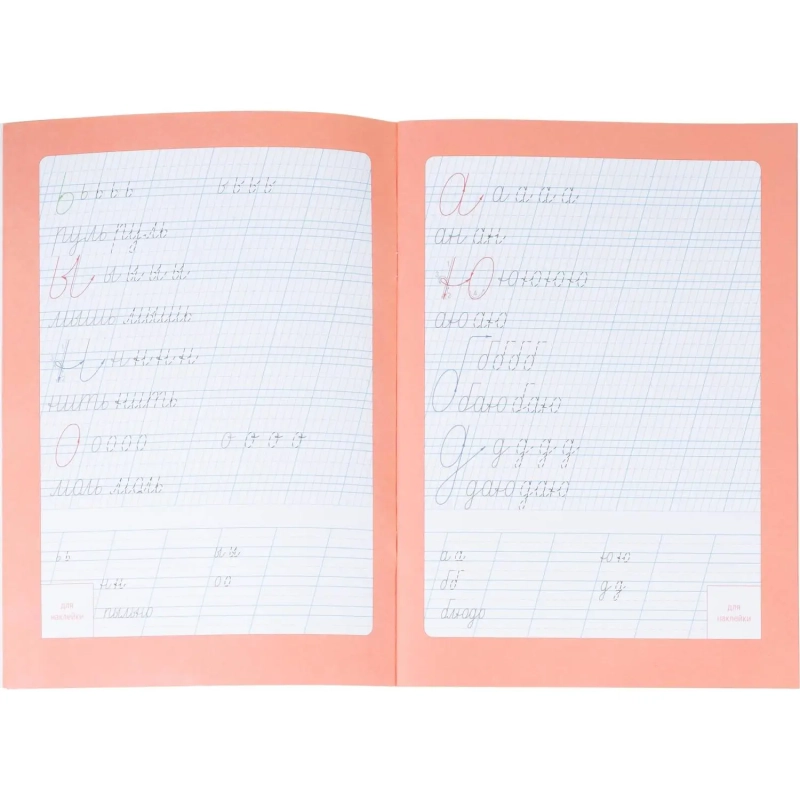 ь ь ь ь ь ь ь ь ь
пуль пуль
ы ы ы ы ы
мышь мышь
н н н н н
нить нить
о о о о о о о о о
моль моль
ьь ыы
нн оо
пыльно
для наклейки
а а а а а
ан ан
ю ю ю ю ю
аю аю
б б б б
баю баю
д д д д д
даю даю
аа юю
бб дд
блюдо
для наклейки